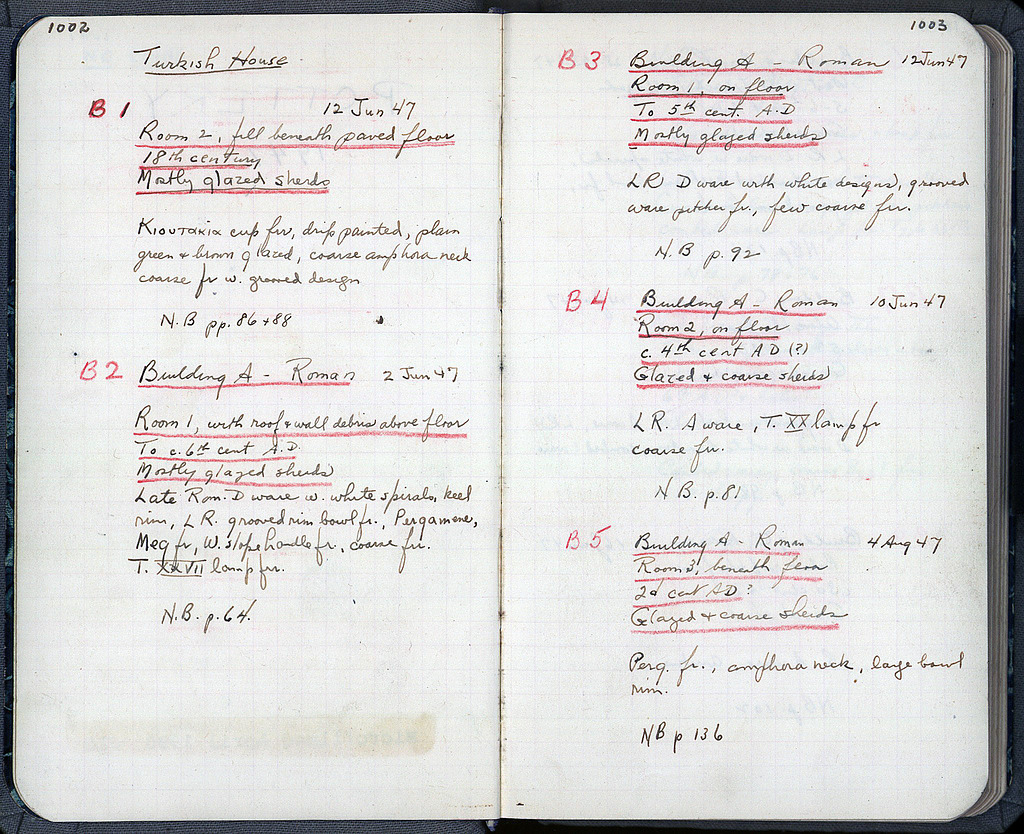 1002
Turkish House
B 1
12 Jun 47
Room 2, fill beneath paved floor
18th century
Mostly glazed sherds
Κιουτακια cup frr, drip painted, plain
green & brown glazed, coarse amphora neck
coarse fr w. grooved design
N.B pp. 86 + 88
B 2 Building A - Roman 2 Jun 47
Room 1, with roof & wall debris above floor
To c. 6th cent A.D.
Mostly glazed sherds
Late Rom. D ware w. white spirals, keel
rim, L R. grooved rim bowl fr., Pergamene,
Meg fr, W. slope handle fr., coarse frr.
T. XXVII lamp frr.
N.B. p. 64.
1003
B 3 Building A - Roman 12 Jun 47
Room 1, on floor
To 5th cent. A.D
Mostly glazed sherds
LR D ware with white designs, grooved
ware pitcher fr., few coarse frr.
N.B p. 92
B 4 Building A - Roman 10 Jun 47
Room 2, on floor
c. 4th cent A D (?)
Glazed & coarse sherds
L R. A ware, T. XX lamp fr
coarse frr.
N B. p. 81
B 5 Building A - Roman 4 Aug 47
Room 3, beneath floor
2d cent AD ?
Glazed & coarse sherds
Perg. fr., amphora neck, large bowl
rim.
NB p 136